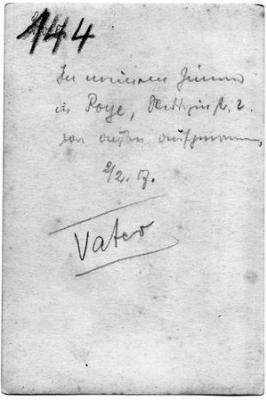 144
In meinem Zimmer
in Roye,
von außen aufgenommen,
2/2. 17.
Vater